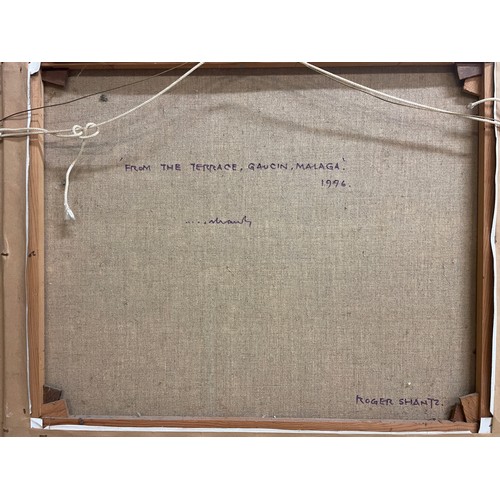 'FROM THE TERRACE, GAUCIN, MALAGA'.
1996.
ROGER SHANTZ.